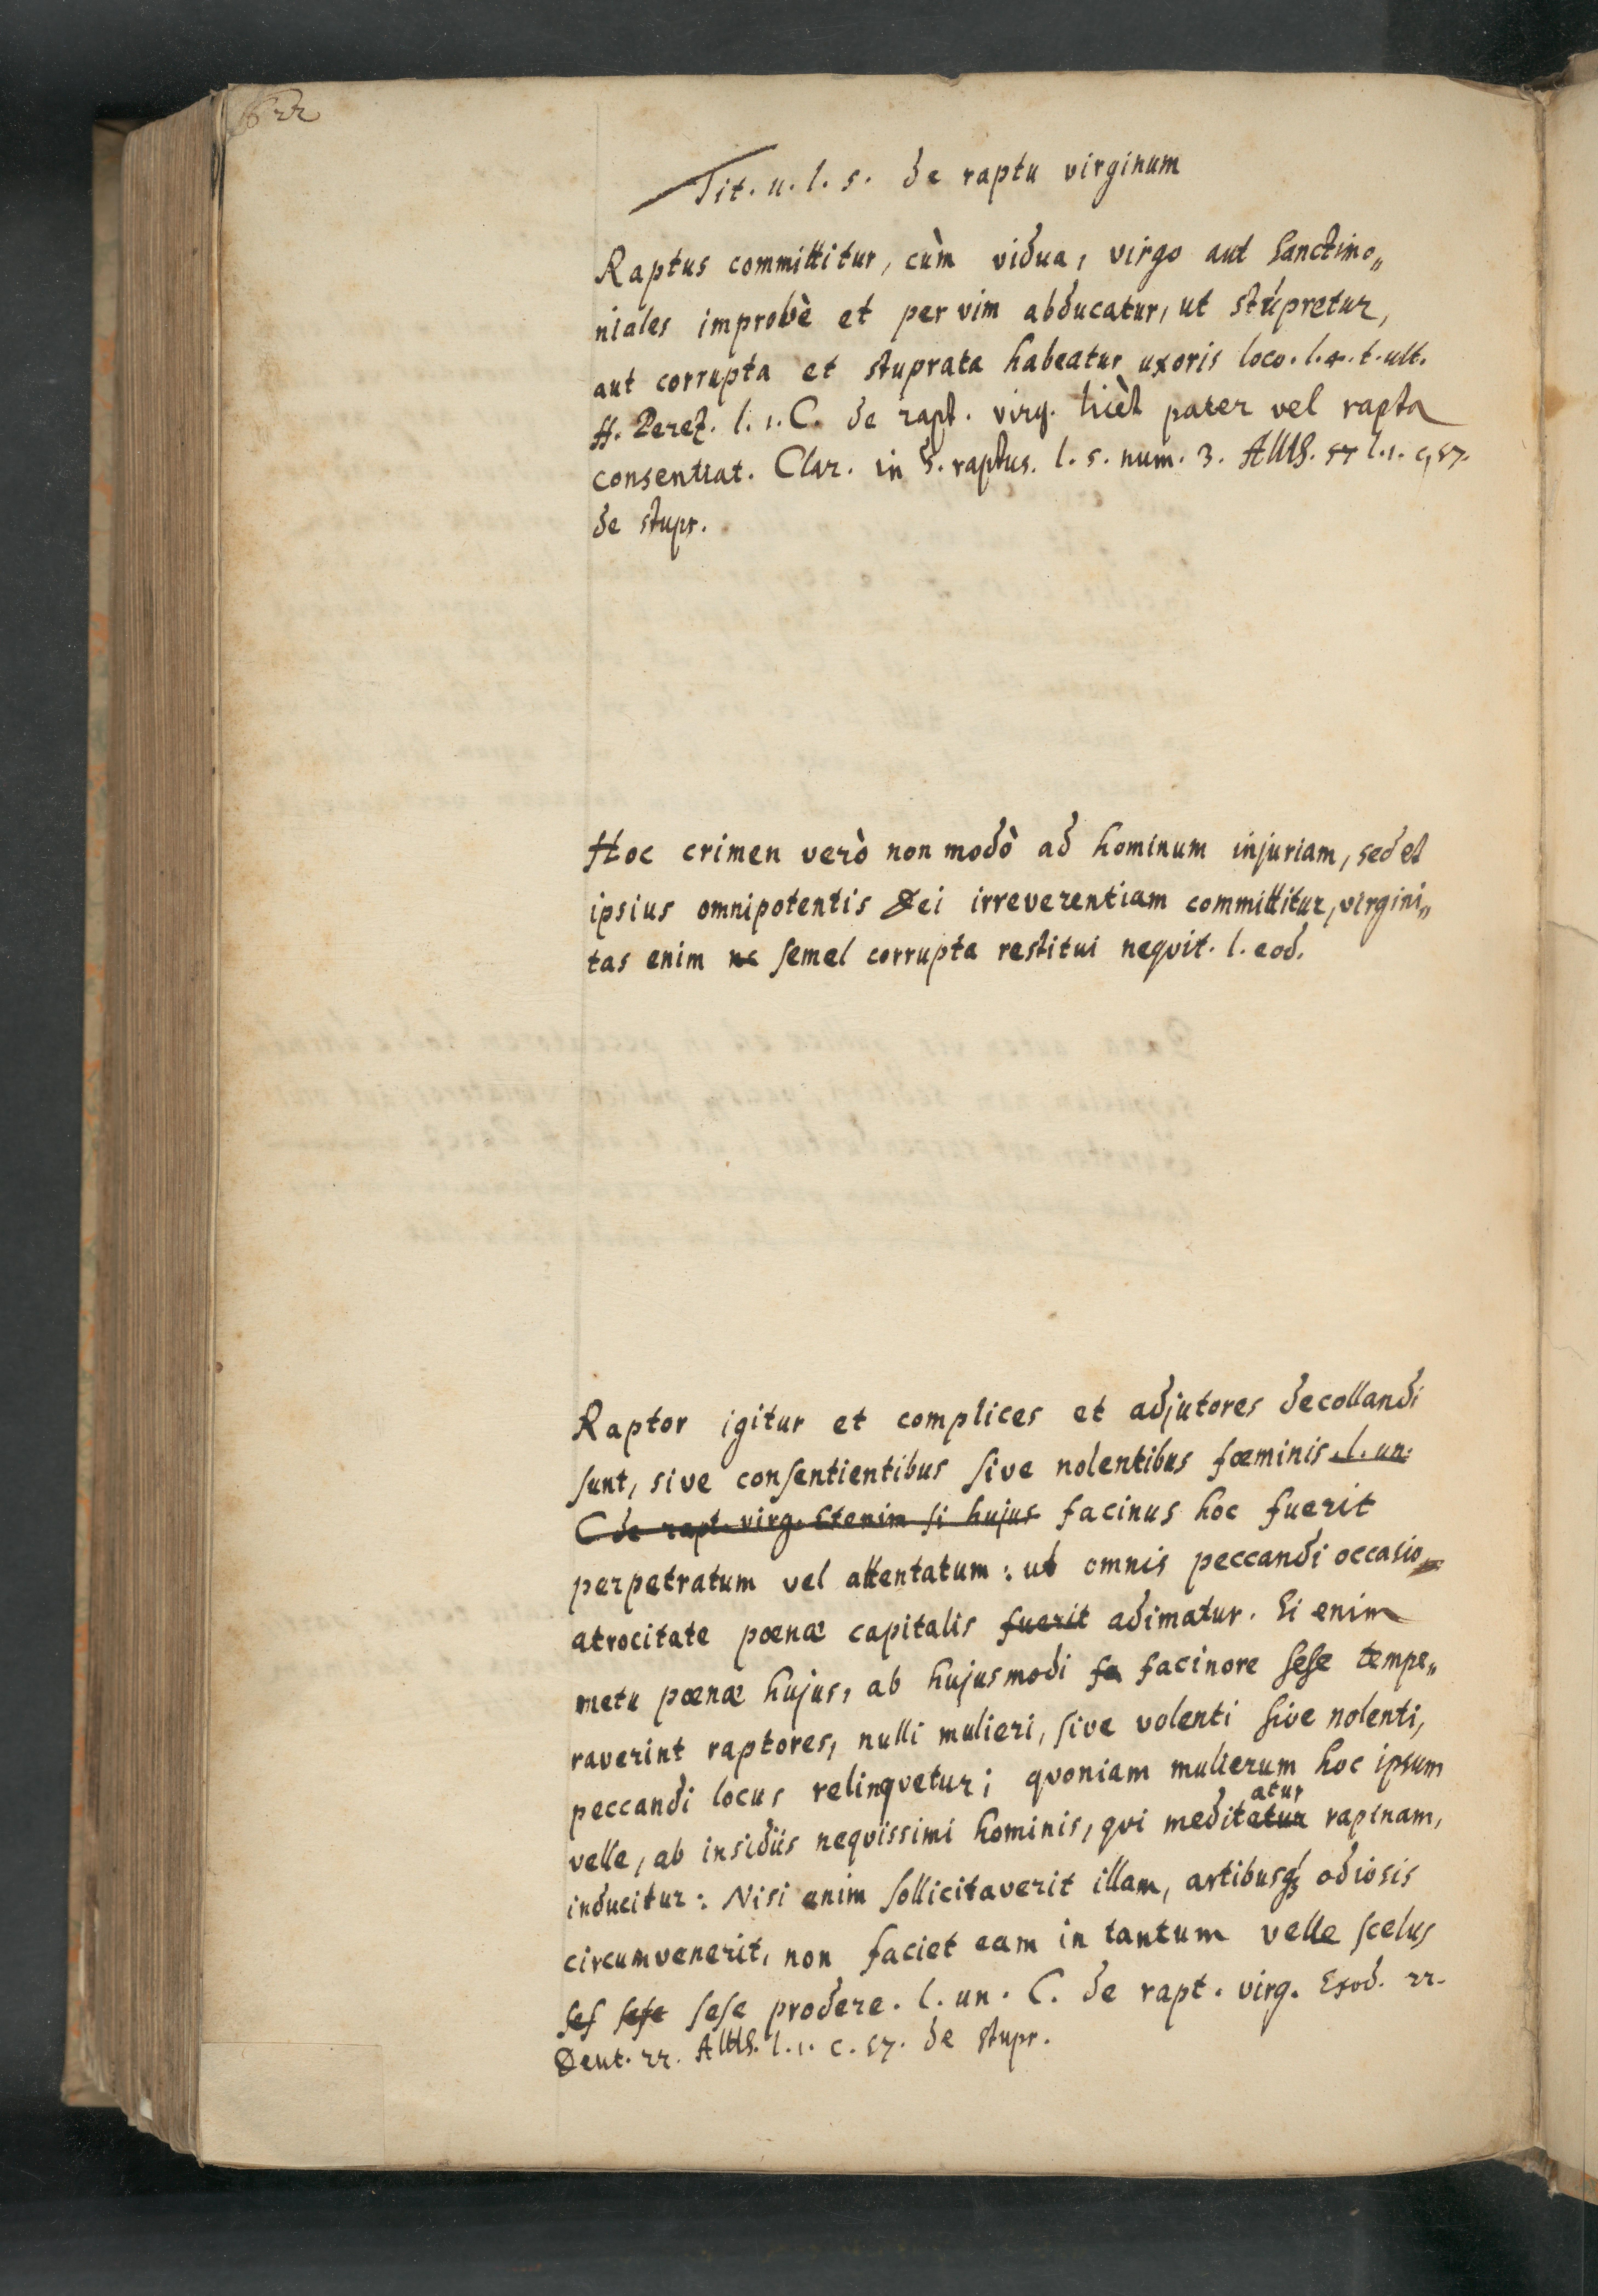 622
Tit. u. l. 5. de raptu virginum
Raptus committitur, cùm vidua, virgo aut Sanctimo„
niales improbè et per vim abducatur, ut stupretur,
aut corrupta et stuprata habeatur uxoris loco. l. 4. t. ult.
ff. Perez. l. 1. C. de rapt. virg. licèt pater vel rapta
consentiat. Clar. in §. raptus. l. 5. num. 3. l. 1. c. 57.
de stupr.
Hoc crimen verò non modò ad hominum injuriam, sed et
ipsius omnipotentis Dei irreverentiam committitur, virgini„
tas enim ne semel corrupta restitui nequit. l. eod.
Raptor igitur et complices et adjutores decollandi
sunt, sive consentientibus sive nolentibus fœminis. l. un.
C de rapt. virg. Etenim si hujus facinus hoc fuerit
perpetratum vel attentatum: ut omnis peccandi occasio
atrocitate pœnæ capitalis fuerit adimatur. Si enim
metu pœnæ hujus, ab hujusmodi fa facinore sese tempe„
raverint raptores, nulli mulieri, sive volenti sive nolenti,
peccandi locus relinqvetur; qvoniam mulierum hoc ipsum
velle, ab insidiis neqvissimi hominis, qvi meditatur atur rapinam,
inducitur: Nisi enim sollicitaverit illam, artibusq3 odiosis
circumvenerit, non faciet eam in tantum velle scelus
ses sese sese prodere. l. un. C. de rapt. virg. Exod. 22.
Deut. 22. l. 1. c. 57. de stupr.